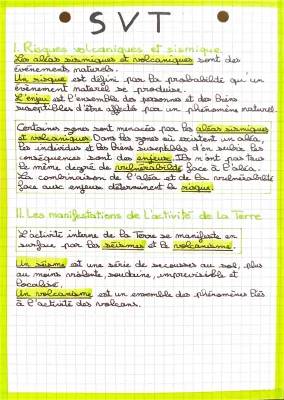 SVT
I. Risques volcaniques et sismique.
Les aléas sismiques et volcaniques sont des
événements naturels.
Un risque est défini par la probabilité qu'un
évènement naturel se produise.
L'enjeu est l'ensemble des personnes et des biens
susceptibles d'être affectés par un phénomène naturel.
Certaines zones sont menacés par les aléas sismiques
et volcaniques. Dans les zones où existent un aléa
les individus et les biens susceptibles d'en subir les
conséquences sont des enjeux. Ils n'ont pas tous
le même degré de vulnérabilité face à l'aléa.
La combinaison de l'aléa et de la vulnérabilité
face aux enjeux déterminent le risque.
II. Les manifestations de l'activité de La Terre
L'activité interne de la Terre se manifeste en
surface par les séismes et le volcanisme.
Un séisme est une série de secousses au sol, plus
ou moins violente, soudaine, imprévisible et
localisé.
Un volcanisme est un ensemble des phénomènes liés
à l'activité des volcans.